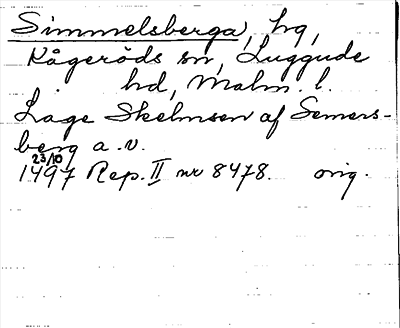 Simmelsberga, hg,
Kågeröds sn, Luggude
hd, Malm. l.
Lage Skelmsen af Semers-
berg a.v.
23/10
1497 Rep. II nr 8478. orig.